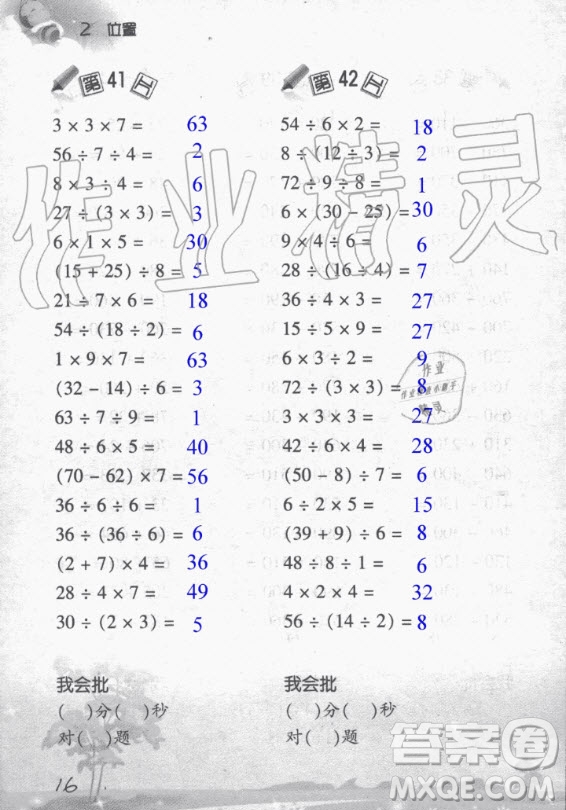 2 位置
第 41 工
3 × 3 × 7 = 63
56 ÷ 7 ÷ 4 = 2
8 × 3 ÷ 4 = 6
27 ÷ (3 × 3) = 3
6 × 1 × 5 = 30
(15 + 25) ÷ 8 = 5
21 ÷ 7 × 6 = 18
54 ÷ (18 ÷ 2) = 6
1 × 9 × 7 = 63
(32 − 14) ÷ 6 = 3
63 ÷ 7 ÷ 9 = 1
48 ÷ 6 × 5 = 40
(70 − 62) × 7 = 56
36 ÷ 6 ÷ 6 = 1
36 ÷ (36 ÷ 6) = 6
(2 + 7) × 4 = 36
28 ÷ 4 × 7 = 49
30 ÷ (2 × 3) = 5
我会批
( )分( )秒
对( )题
第 42 工
54 ÷ 6 × 2 = 18
8 ÷ (12 ÷ 3) = 2
72 ÷ 9 ÷ 8 = 1
6 × (30 − 25) = 30
9 × 4 ÷ 6 = 6
28 ÷ (16 ÷ 4) = 7
36 ÷ 4 × 3 = 27
15 ÷ 5 × 9 = 27
6 × 3 ÷ 2 = 9
72 ÷ (3 × 3) = 8
3 × 3 × 3 = 27
42 ÷ 6 × 4 = 28
(50 − 8) ÷ 7 = 6
6 ÷ 2 × 5 = 15
(39 + 9) ÷ 6 = 8
48 ÷ 8 ÷ 1 = 6
4 × 2 × 4 = 32
56 ÷ (14 ÷ 2) = 8
我会批
( )分( )秒
对( )题
16
作业精灵
作业
精灵
答案圈
MXQE.COM